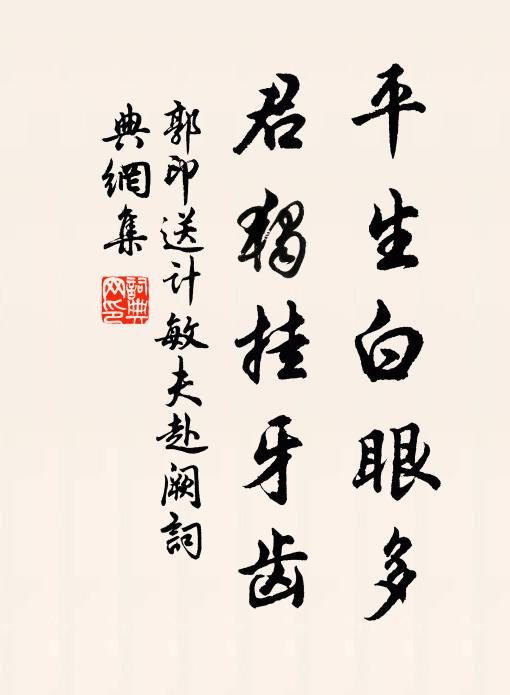 平生白眼多
君獨挂牙齿
郭印送计敏夫赴阙詞
典網集
詞典
网印